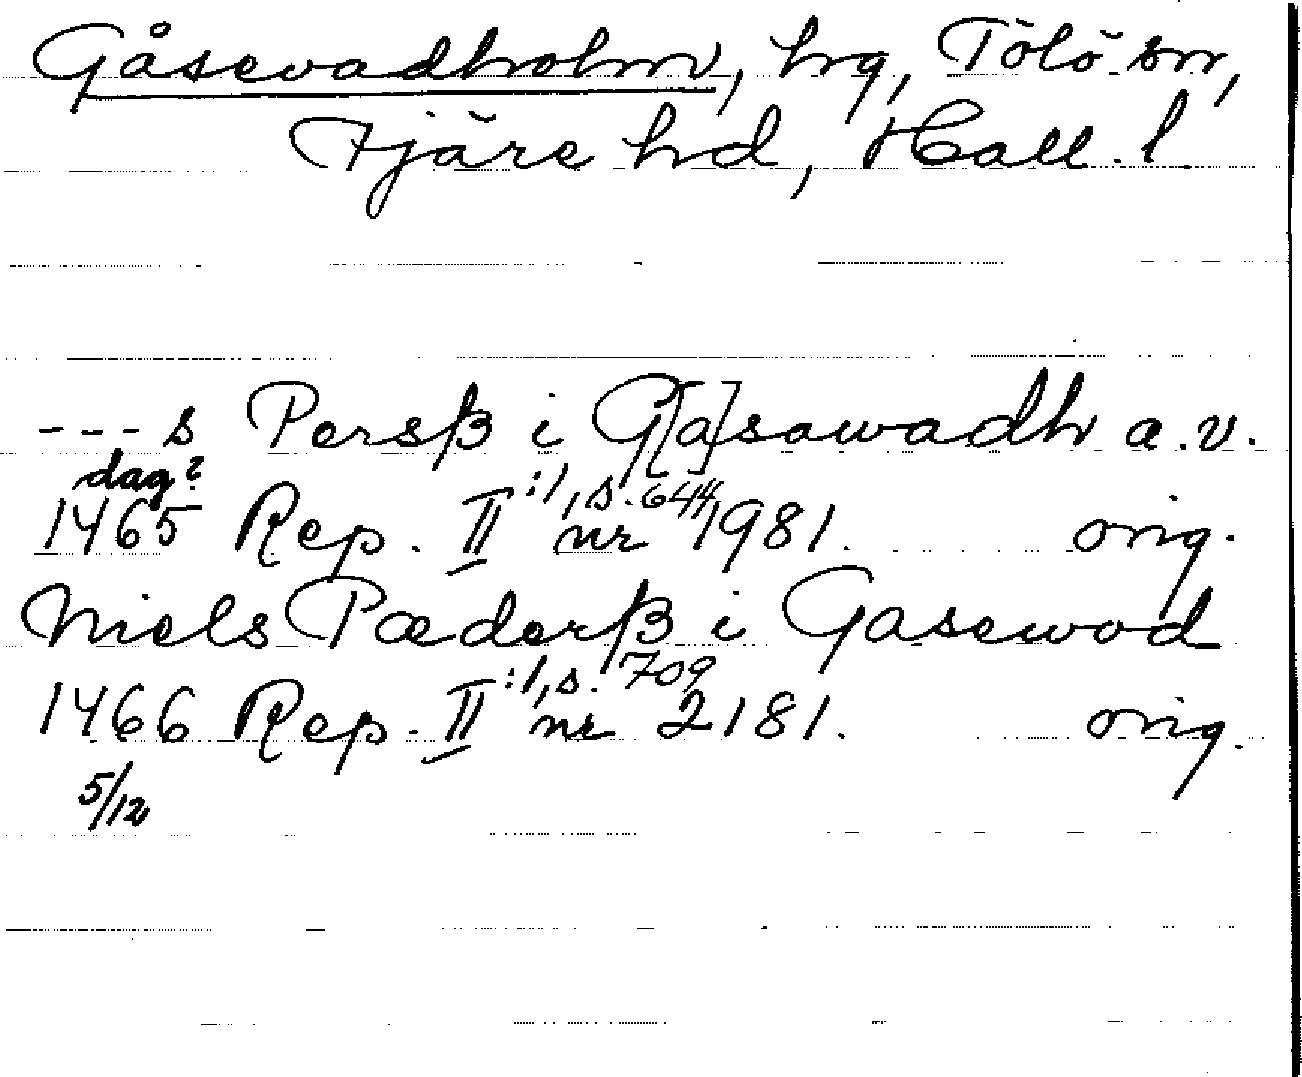 Gåsevadholm, hg, Tölö sn,
Fjäre hd, Hall. l.
---s Persß i G[a]sawadh a.v.
dag?
1465 Rep. II :1, s. 644 nr 1981. orig.
Niels Pædersß i Gasewod
1466 Rep. II :1, s. 709 nr 2181. orig.
5/12